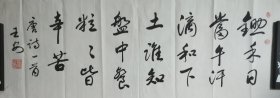 鋤禾日
當午汗
滴和下
土誰知
盤中餐
粒々皆
辛苦
唐詩一首